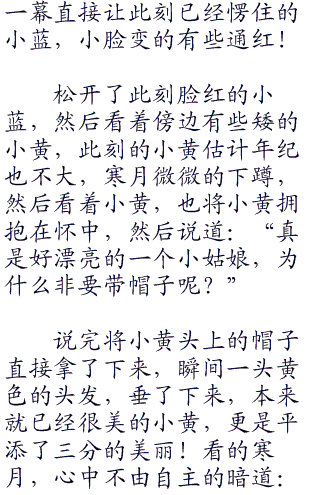 一幕直接让此刻已经愣住的
小蓝，小脸变的有些通红！
松开了此刻脸红的小
蓝，然后看着傍边有些矮的
小黄，此刻的小黄估计年纪
也不大，寒月微微的下蹲，
然后看着小黄，也将小黄拥
抱在怀中，然后说道：“真
是好漂亮的一个小姑娘，为
什么非要带帽子呢？”
说完将小黄头上的帽子
直接拿了下来，瞬间一头黄
色的头发，垂了下来，本来
就已经很美的小黄，更是平
添了三分的美丽！看的寒
月，心中不由自主的暗道：